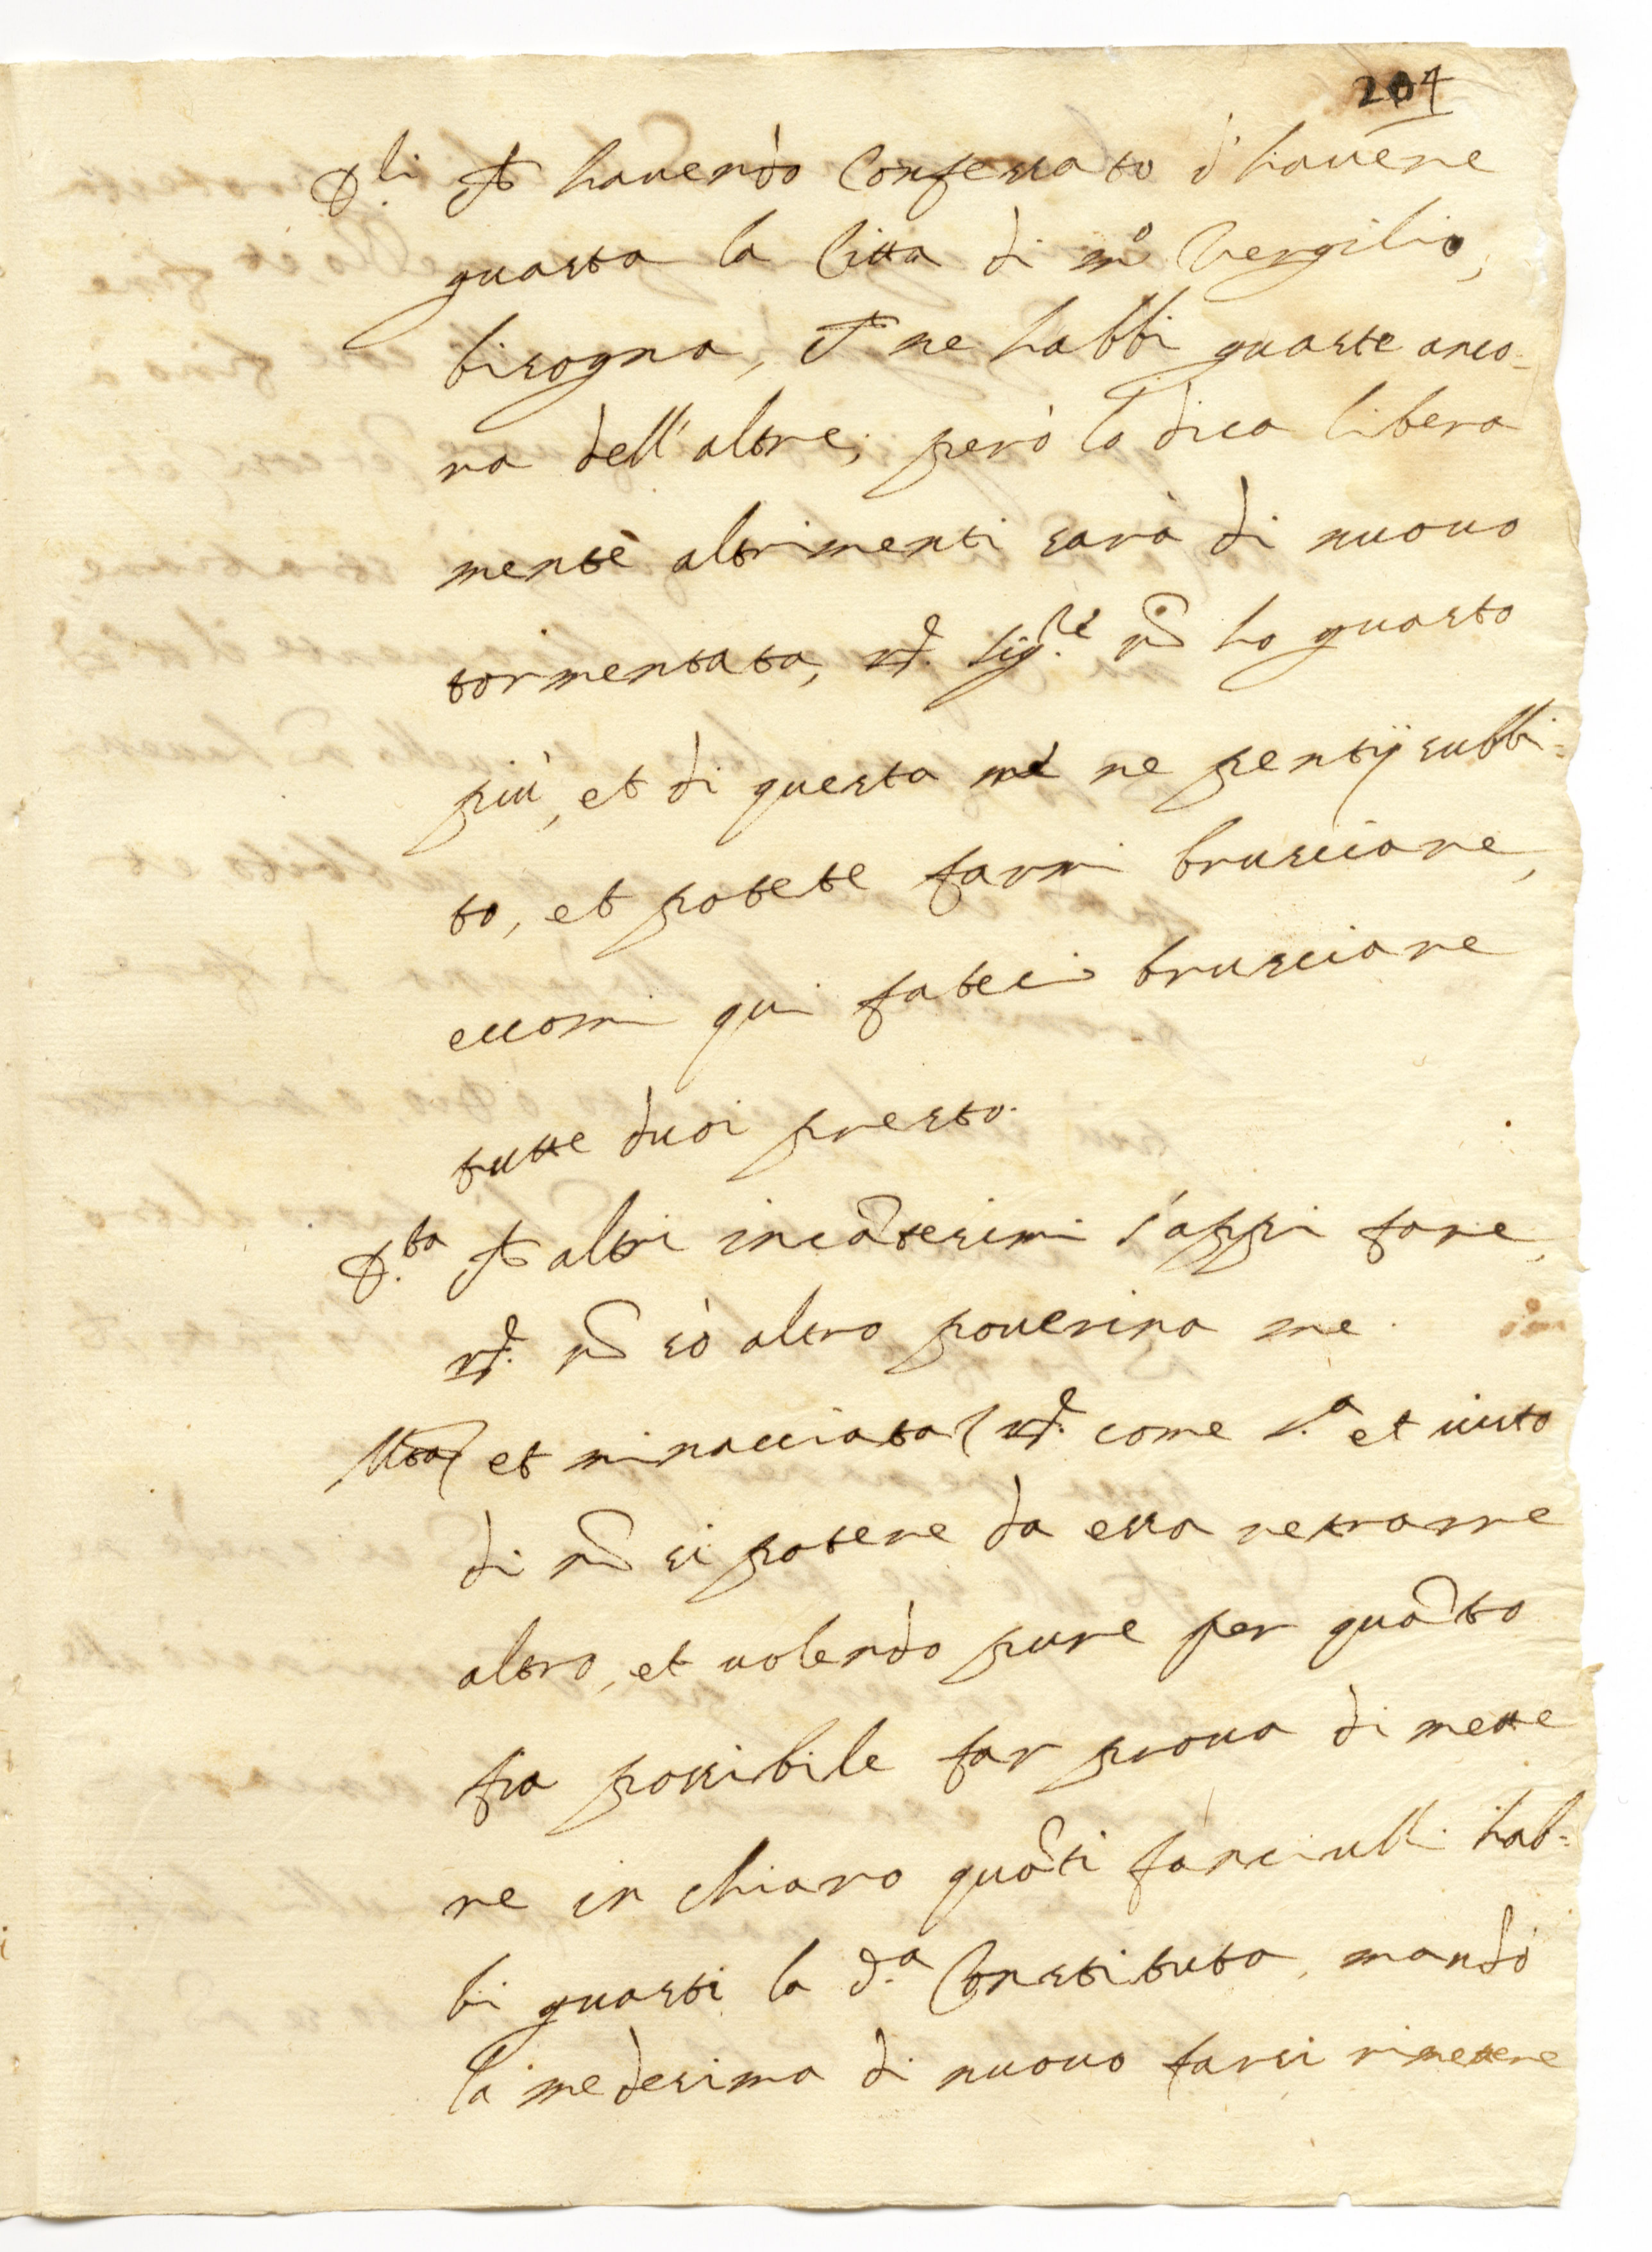 204
D.li ch havendo Confessato d'havere
guasta la Citta di mo Vergilio,
bisogna, ch ne habbi guaste anco-
ra dell'altre, però lo dica libera
mente altrimenti sarà di nuovo
tormentata, rd. Sig.re nõ ho guasto
più, et di questa me ne pentij subbi=
to, et potete farmi brusciare,
eccomi qui fateci brusciare
tutte duoi presto.
D.ta ch altri incãtesimi sappi fare,
rd. nõ sò altro poverina me.
Mta, et minacciata, rd. come s.a et visto
di nõ si potere da essa retrarre
altro, et volendo pure per quãto
fia possibile far prova di mette
re in chiaro quãti fanciulli hab=
bi guasti la d.a Constituta, mandò
la medesima di nuovo farsi rimettere